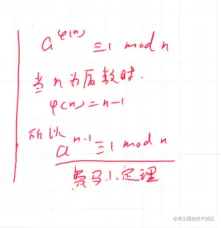 a^φ(n) ≡ 1 mod n
当 n 为质数时.
φ(n) = n-1
所以
a^n-1 ≡ 1 mod n
费马小定理
@稀土掘金技术社区